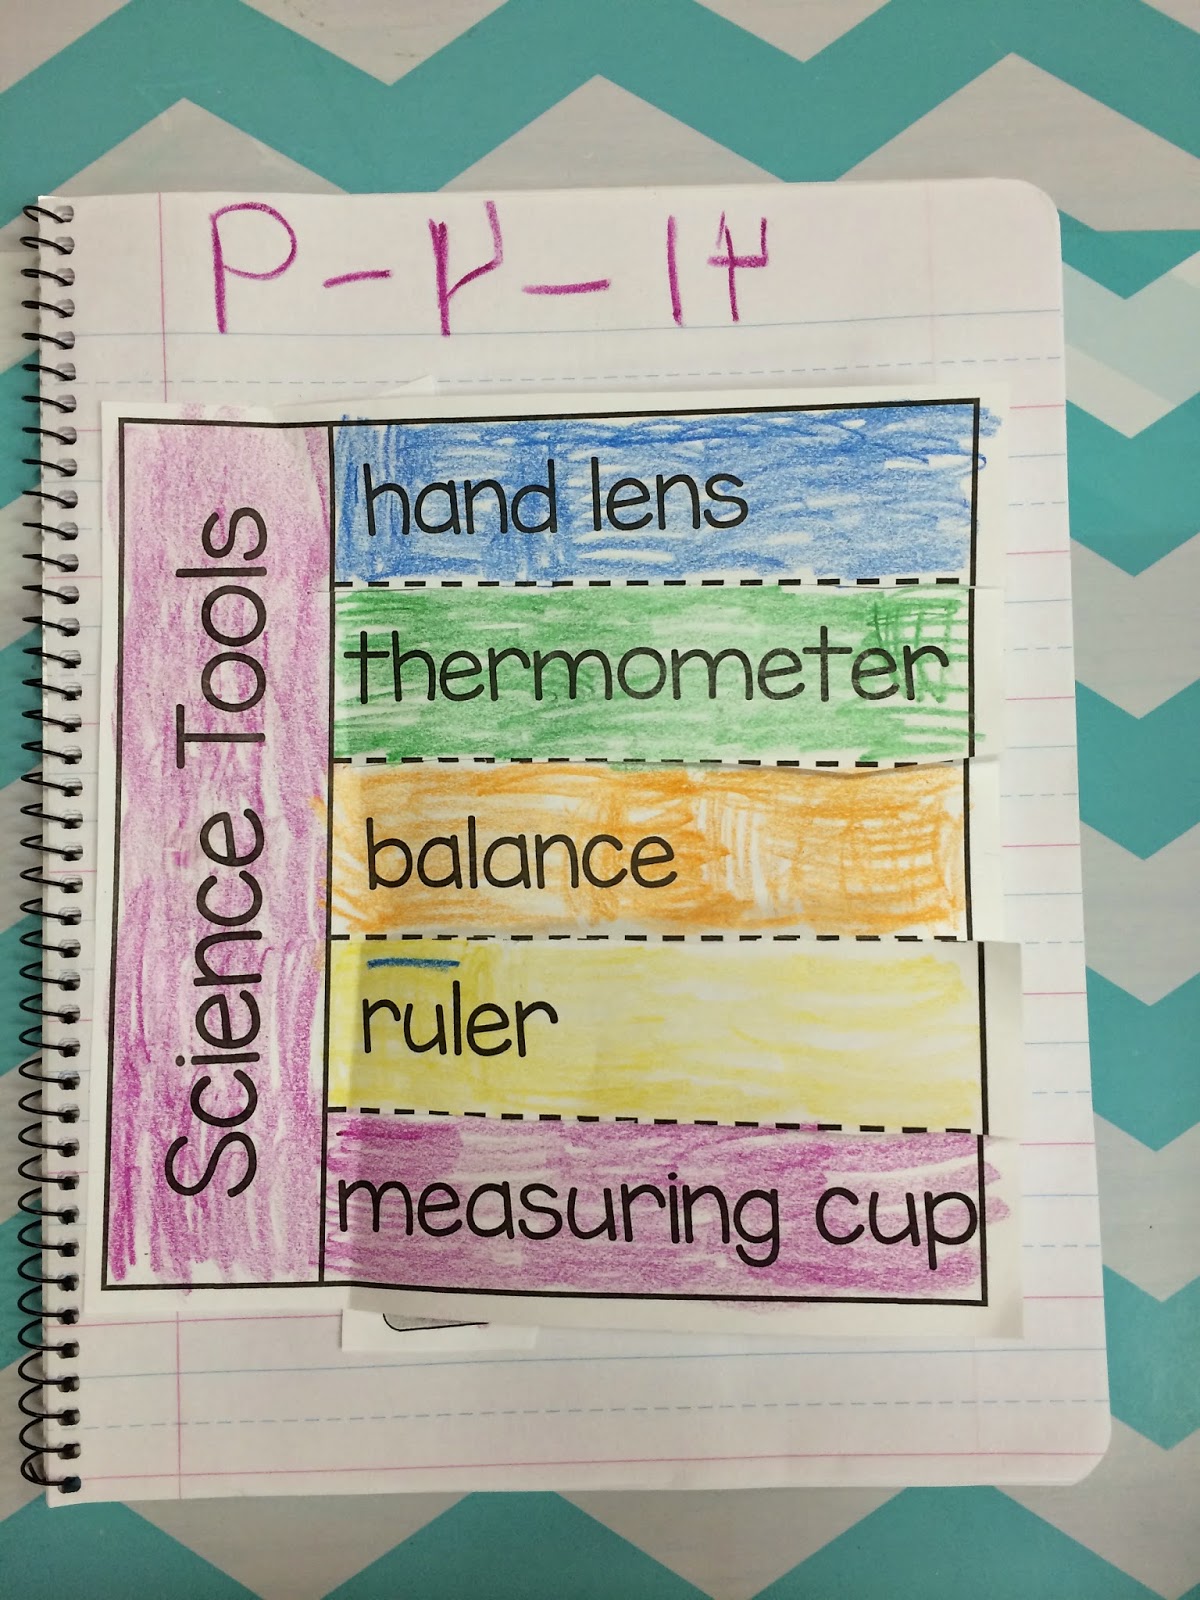 9-4-14
Science Tools
hand lens
thermometer
balance
ruler
measuring cup